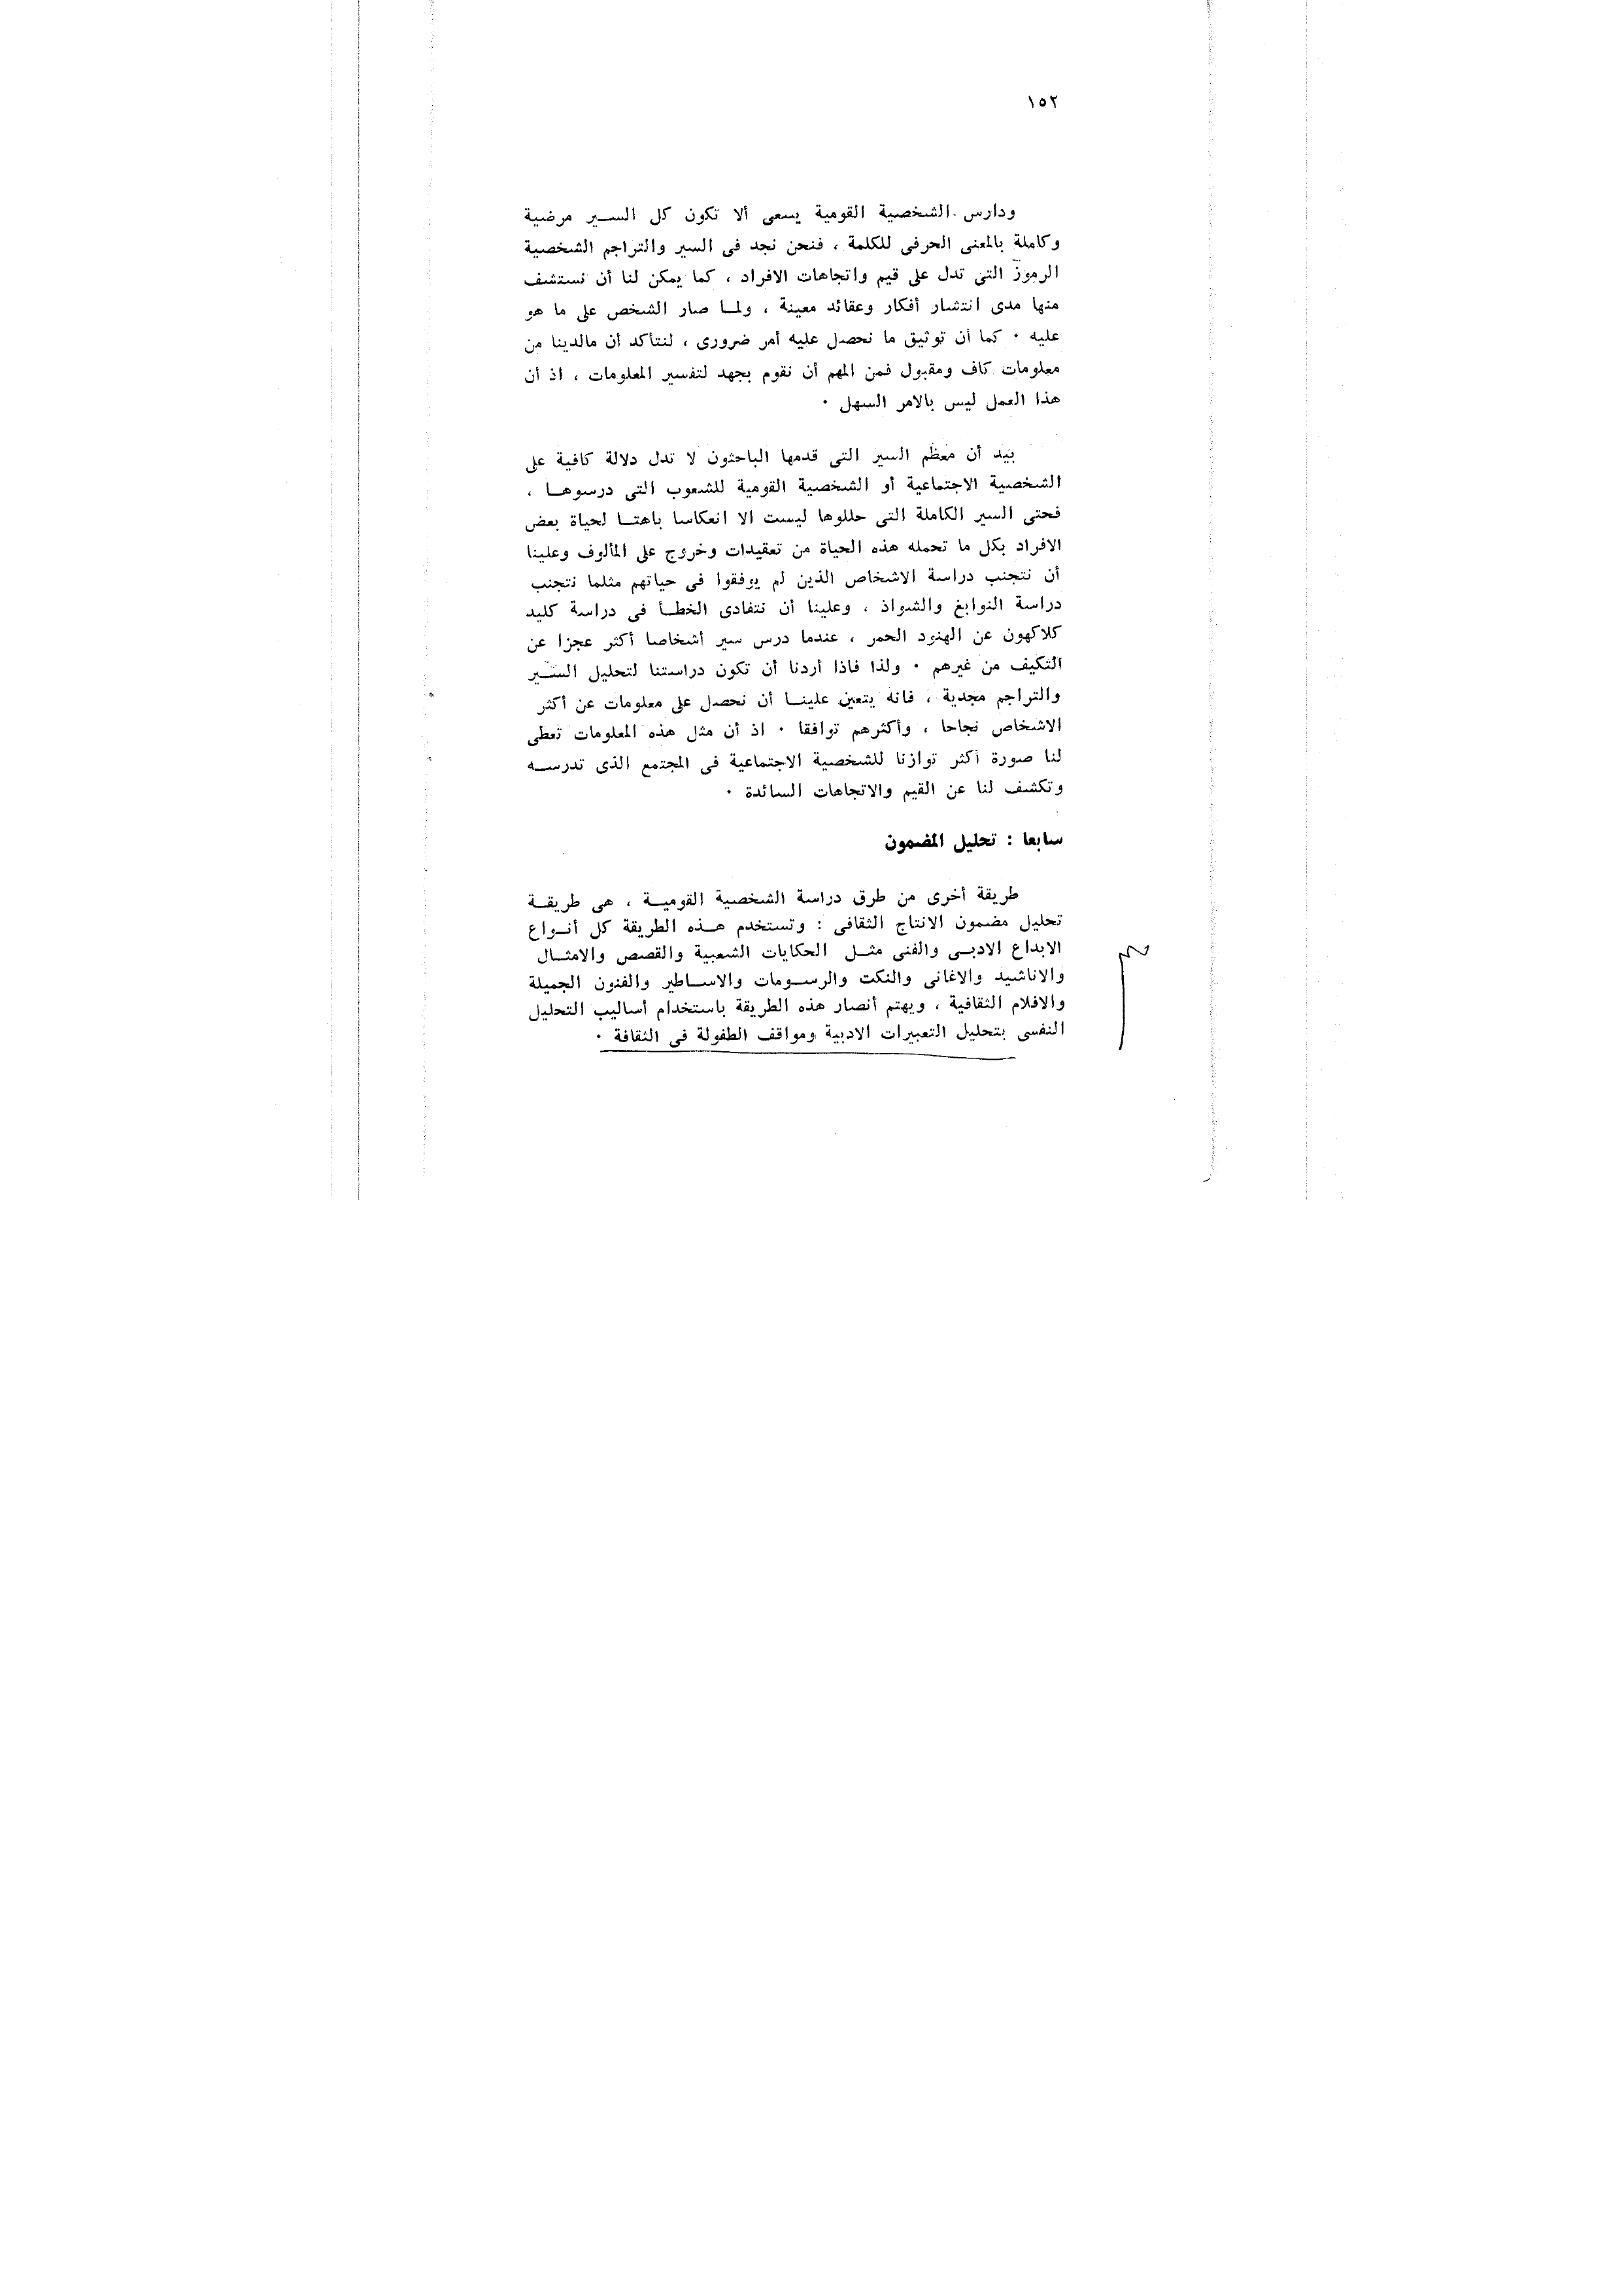 ١٥٢
ودارس الشخصية القومية يسعى ألا تكون كل الســير مرضية
وكاملة بالمعنى الحرفى للكلمة ، فنحن نجد فى السير والتراجم الشخصية
الرموز التى تدل على قيم واتجاهات الافراد ، كما يمكن لنا أن نستشف
منها مدى انتشار أفكار وعقائد معينة ، ولمـا صار الشخص على ما هو
عليه ٠ كما أن توثيق ما نحصل عليه أمر ضرورى ، لنتأكد أن مالدينا من
معلومات كاف ومقبول فمن المهم أن نقوم بجهد لتفسير المعلومات ، اذ أن
هذا العمل ليس بالامر السهل ٠
بيد أن معظم السير التى قدمها الباحثون لا تدل دلالة كافية على
الشخصية الاجتماعية أو الشخصية القومية للشعوب التى درسوهـا ،
فحتى السير الكاملة التى حللوها ليست الا انعكاسا باهتـا لحياة بعض
الافراد بكل ما تحمله هذه الحياة من تعقيدات وخروج على المألوف وعلينا
أن نتجنب دراسة الاشخاص الذين لم يوفقوا فى حياتهم مثلما نتجنب
دراسة النوابغ والشواذ ، وعلينا أن نتفادى الخطـأ فى دراسة كليد
كلاكهون عن الهنود الحمر ، عندما درس سير أشخاصا أكثر عجزا عن
التكيف من غيرهم ٠ ولذا فاذا أردنا أن تكون دراستنا لتحليل السـير
والتراجم مجدية ، فانه يتعين علينـا أن نحصل على معلومات عن أكثر
الاشخاص نجاحا ، وأكثرهم توافقا ٠ اذ أن مثل هذه المعلومات تعطى
لنا صورة أكثر توازنا للشخصية الاجتماعية فى المجتمع الذى تدرسـه
وتكشف لنا عن القيم والاتجاهات السائدة ٠
سابعا : تحليل المضمون
طريقة أخرى من طرق دراسة الشخصية القوميـة ، هى طريقـة
تحليل مضمون الانتاج الثقافى : وتستخدم هـذه الطريقة كل أنـواع
الابداع الادبـى والفنى مثـل الحكايات الشعبية والقصص والامثـال
والاناشيد والاغانى والنكت والرسـومات والاسـاطير والفنون الجميلة
والافلام الثقافية ، ويهتم أنصار هذه الطريقة باستخدام أساليب التحليل
النفسى بتحليل التعبيرات الادبية ومواقف الطفولة فى الثقافة ٠